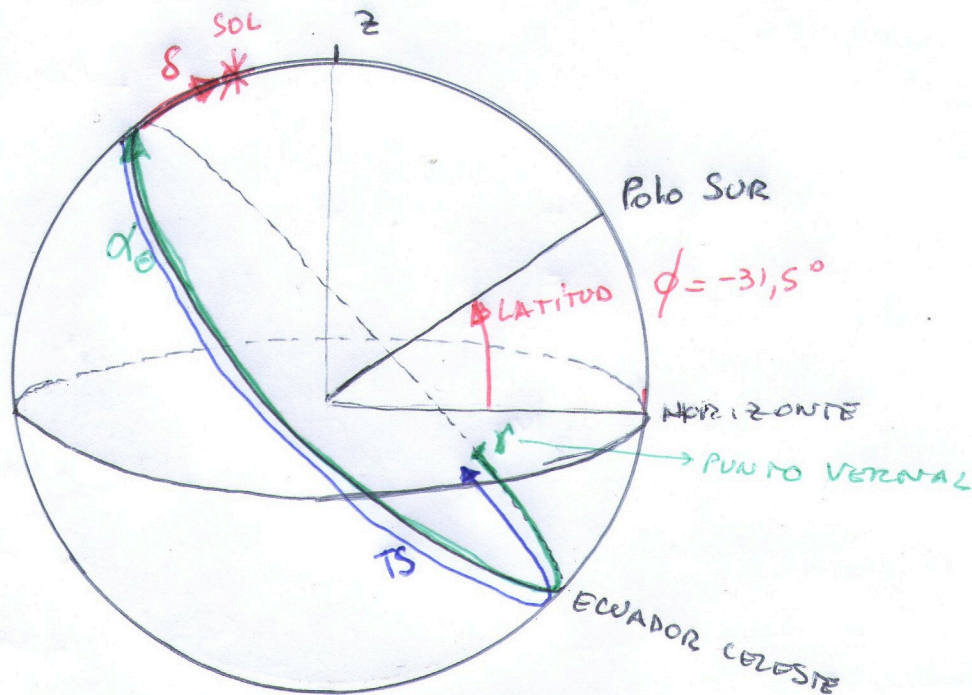 SOL
Z
δ
POLO SUR
LATITUD
ϕ = -31,5°
α⊙
HORIZONTE
γ
PUNTO VERNAL
TS
ECUADOR CELESTE